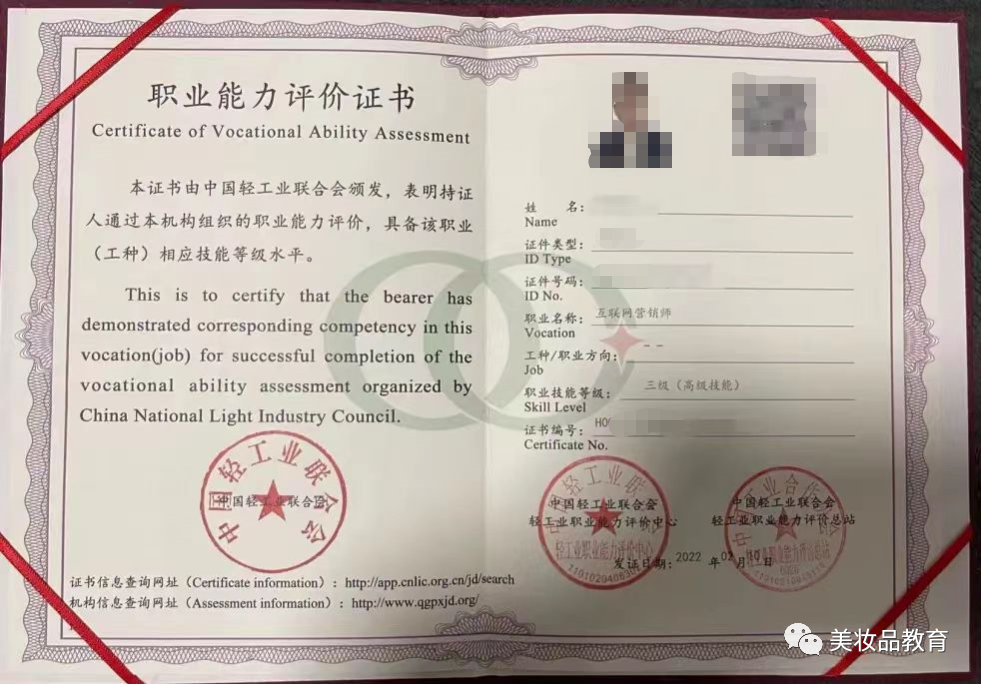 职业能力评价证书
Certificate of Vocational Ability Assessment
本证书由中国轻工业联合会颁发，表明持证
人通过本机构组织的职业能力评价，具备该职业
（工种）相应技能等级水平。
This is to certify that the bearer has
demonstrated corresponding competency in this
vocation(job) for successful completion of the
vocational ability assessment organized by
China National Light Industry Council.
中国轻工业联合会
中国轻工业联合会
证书信息查询网址（Certificate information）：http://app.cnlic.org.cn/jd/search
机构信息查询网址（Assessment information）：http://www.qgpxjd.org/
姓 名：
Name
证件类型：
ID Type
证件号码：
ID No.
职业名称：互联网营销师
Vocation
工种/职业方向：--
Job
职业技能等级：三级（高级技能）
Skill Level
证书编号：H0
Certificate No.
中国轻工业联合会
轻工业职业能力评价中心
中国轻工业联合会
轻工业职业能力评价中心
中国轻工业联合会
轻工业职业能力评价总站
发证日期：2022 年 02 月 10 日
美妆品教育